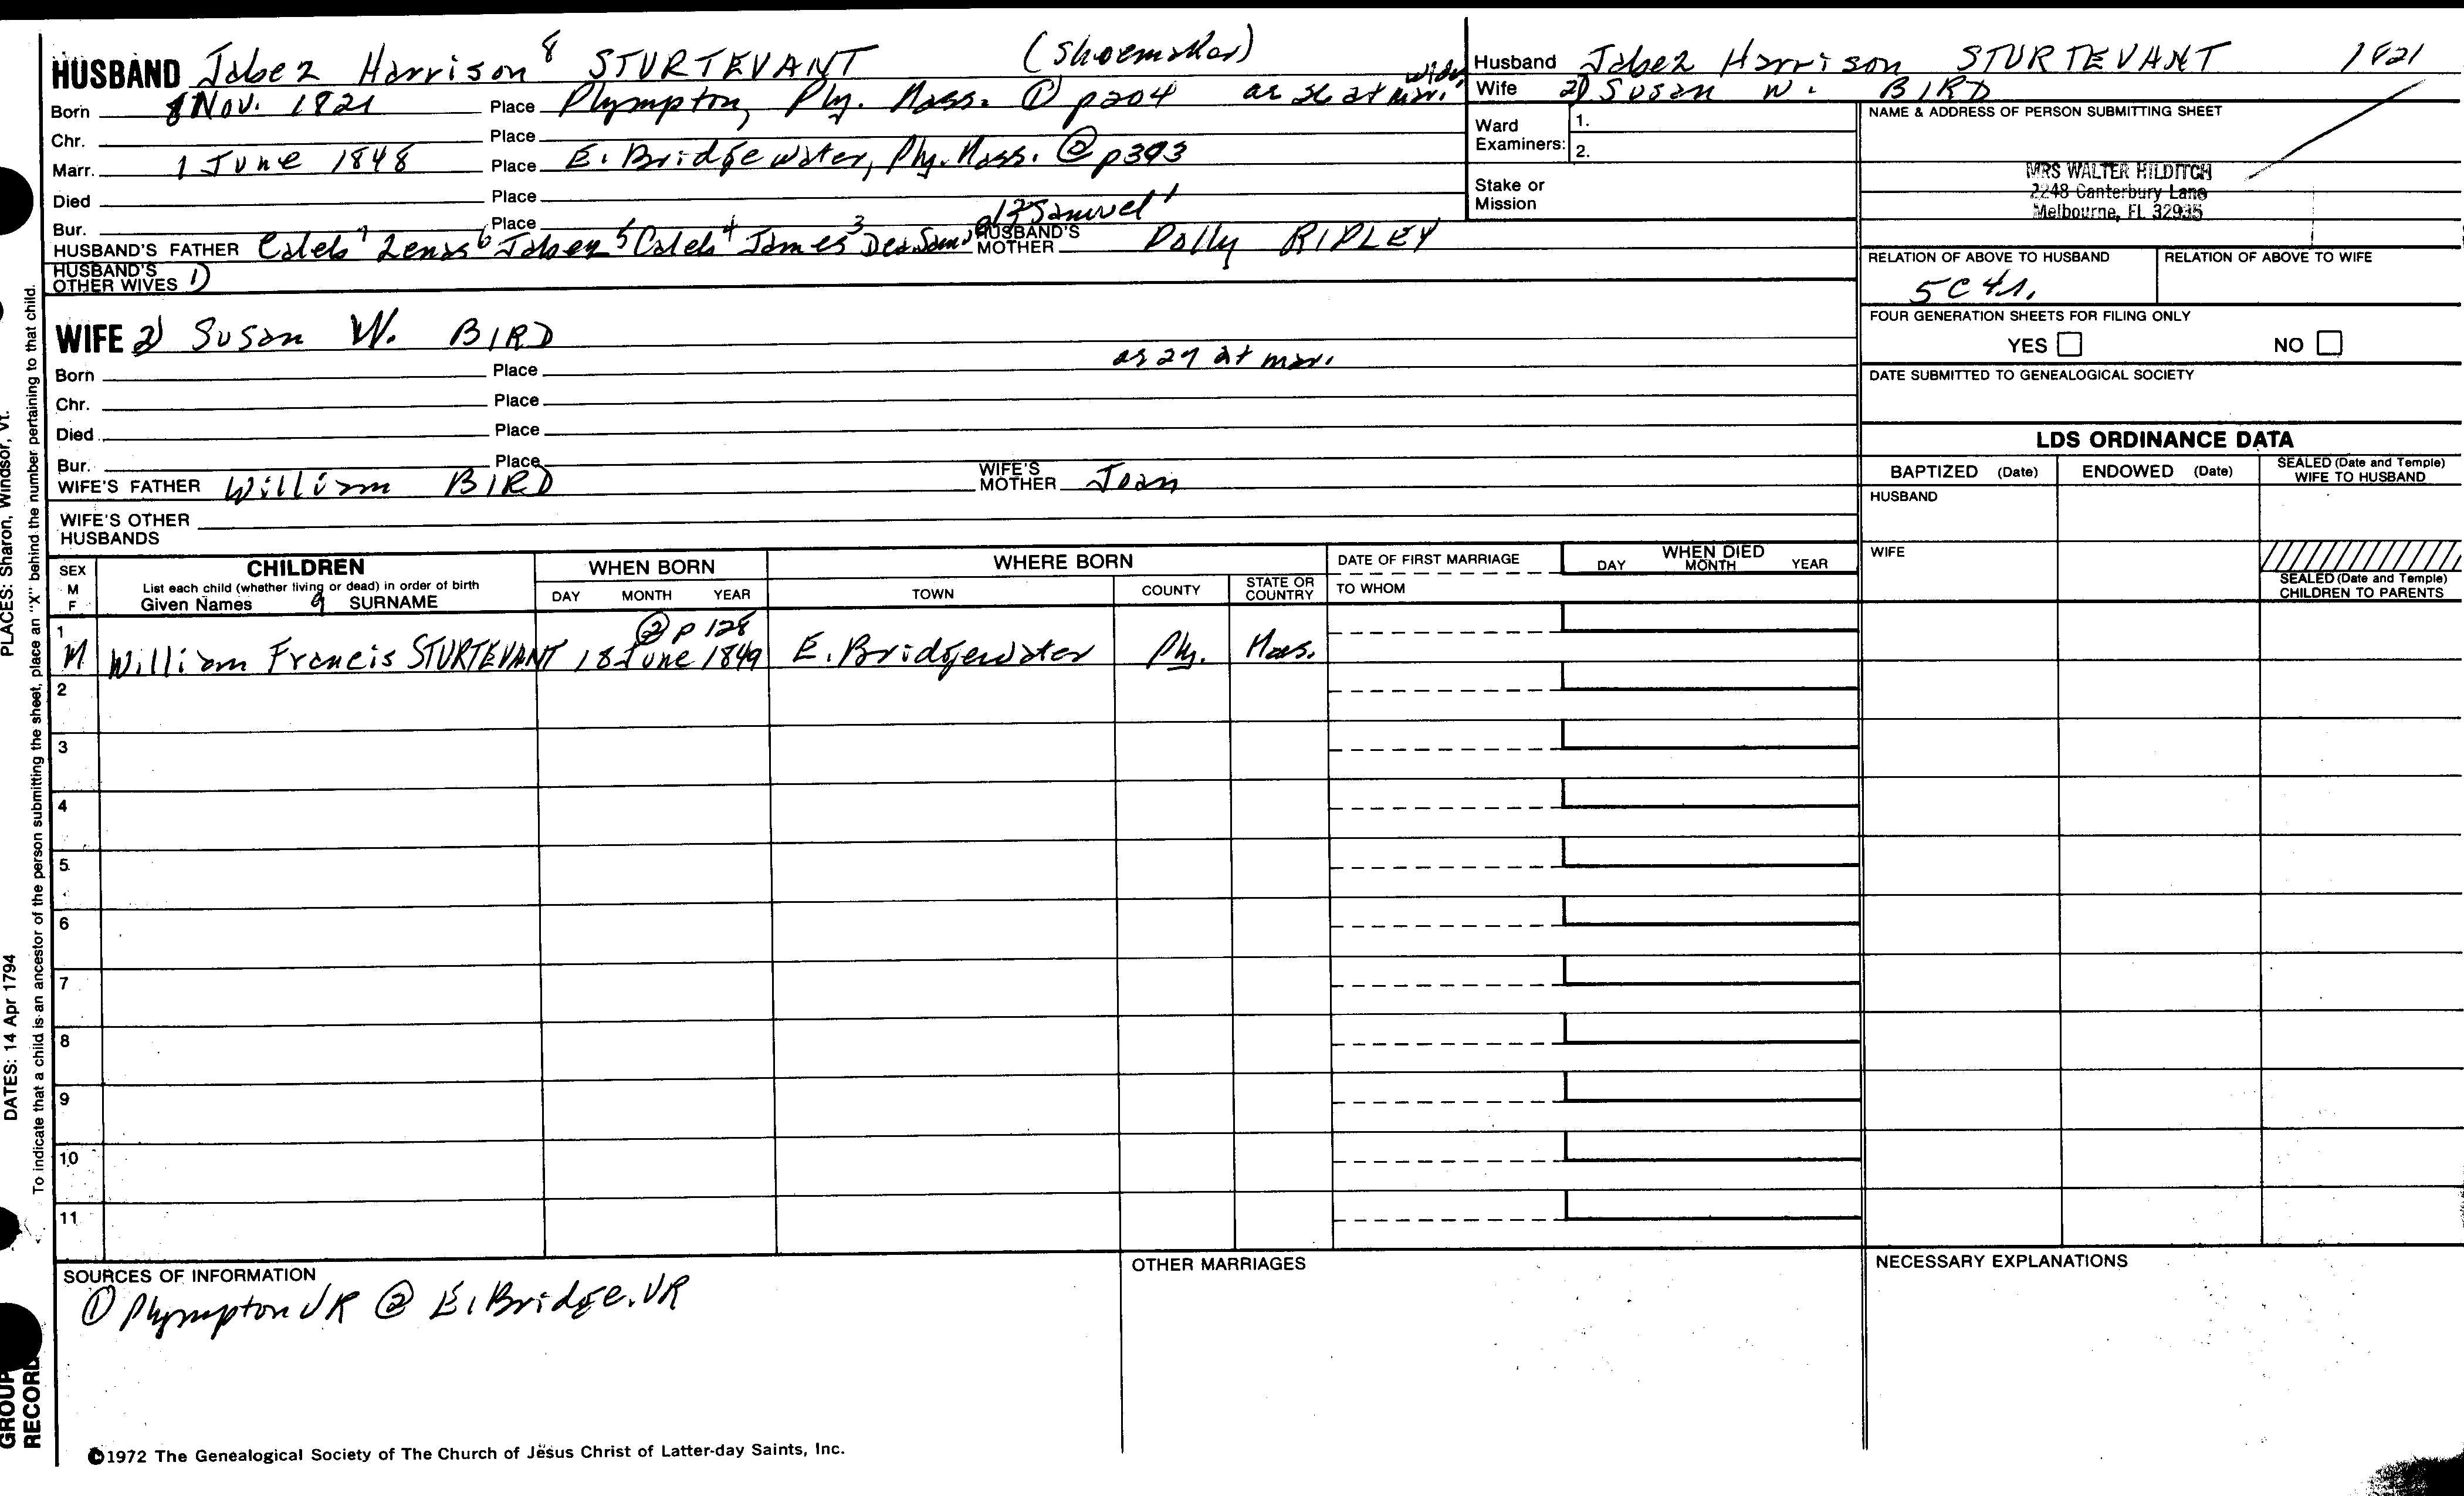 HUSBAND Jabez Harrison 8 STURTEVANT (shoemaker)
Born 8 Nov. 1821 Place Plympton, Ply. Mass. ① p204 as 26 at mar. widr
Chr. Place
Marr. 1 June 1848 Place E. Bridgewater, Ply. Mass. ② p393
Died Place
Bur. Place
HUSBAND'S FATHER Caleb 7 Zenas 6 Jabez 5 Caleb 4 James 3 Dea Sam'l 2 Samuel 1 HUSBAND'S MOTHER Polly RIPLEY
HUSBAND'S OTHER WIVES 1)
WIFE 2) Susan W. BIRD
as 27 at mar.
Born Place
Chr. Place
Died Place
Bur. Place
WIFE'S FATHER William BIRD WIFE'S MOTHER Joan
WIFE'S OTHER HUSBANDS
Husband Jabez Harrison STURTEVANT 1821
Wife 2) Susan W. BIRD
Ward Examiners: 1.
2.
Stake or Mission
NAME & ADDRESS OF PERSON SUBMITTING SHEET
MRS WALTER HILDITCH
2248 Canterbury Lane
Melbourne, FL 32935
RELATION OF ABOVE TO HUSBAND RELATION OF ABOVE TO WIFE
5C 4r.
FOUR GENERATION SHEETS FOR FILING ONLY
YES NO
DATE SUBMITTED TO GENEALOGICAL SOCIETY
LDS ORDINANCE DATA
BAPTIZED (Date) ENDOWED (Date) SEALED (Date and Temple) WIFE TO HUSBAND
HUSBAND
WIFE
SEALED (Date and Temple) CHILDREN TO PARENTS
SEX M F CHILDREN WHEN BORN WHERE BORN DATE OF FIRST MARRIAGE WHEN DIED
List each child (whether living or dead) in order of birth
Given Names 9 SURNAME DAY MONTH YEAR TOWN COUNTY STATE OR COUNTRY TO WHOM DAY MONTH YEAR
② p 128
1 M William Francis STURTEVANT 18 June 1849 E. Bridgewater Ply. Mass.
2
3
4
5
6
7
8
9
10
11
SOURCES OF INFORMATION
① Plympton VR ② E. Bridge. VR
OTHER MARRIAGES
NECESSARY EXPLANATIONS
©1972 The Genealogical Society of The Church of Jesus Christ of Latter-day Saints, Inc.
PLACES: Sharon, Windsor, Vt.
DATES: 14 Apr 1794
To indicate that a child is an ancestor of the person submitting the sheet, place an "X" behind the number pertaining to that child.
GROUP
RECORD